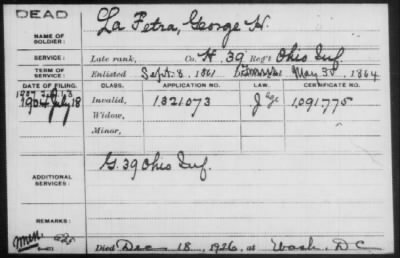 DEAD
NAME OF SOLDIER: La Fetra, George H.
SERVICE: Late rank, Co. H. 39 Reg't Ohio Inf.
TERM OF SERVICE: Enlisted Sept. 8, 1861 Discharged May 30, 1864
DATE OF FILING. CLASS. APPLICATION NO. LAW. CERTIFICATE NO.
1904 July 18 Invalid, 1,321,073 J age 1,091,775
Widow,
Minor,
ADDITIONAL SERVICES: G. 39 Ohio Inf.
REMARKS:
Died Dec 18, 1926, at Wash. DC